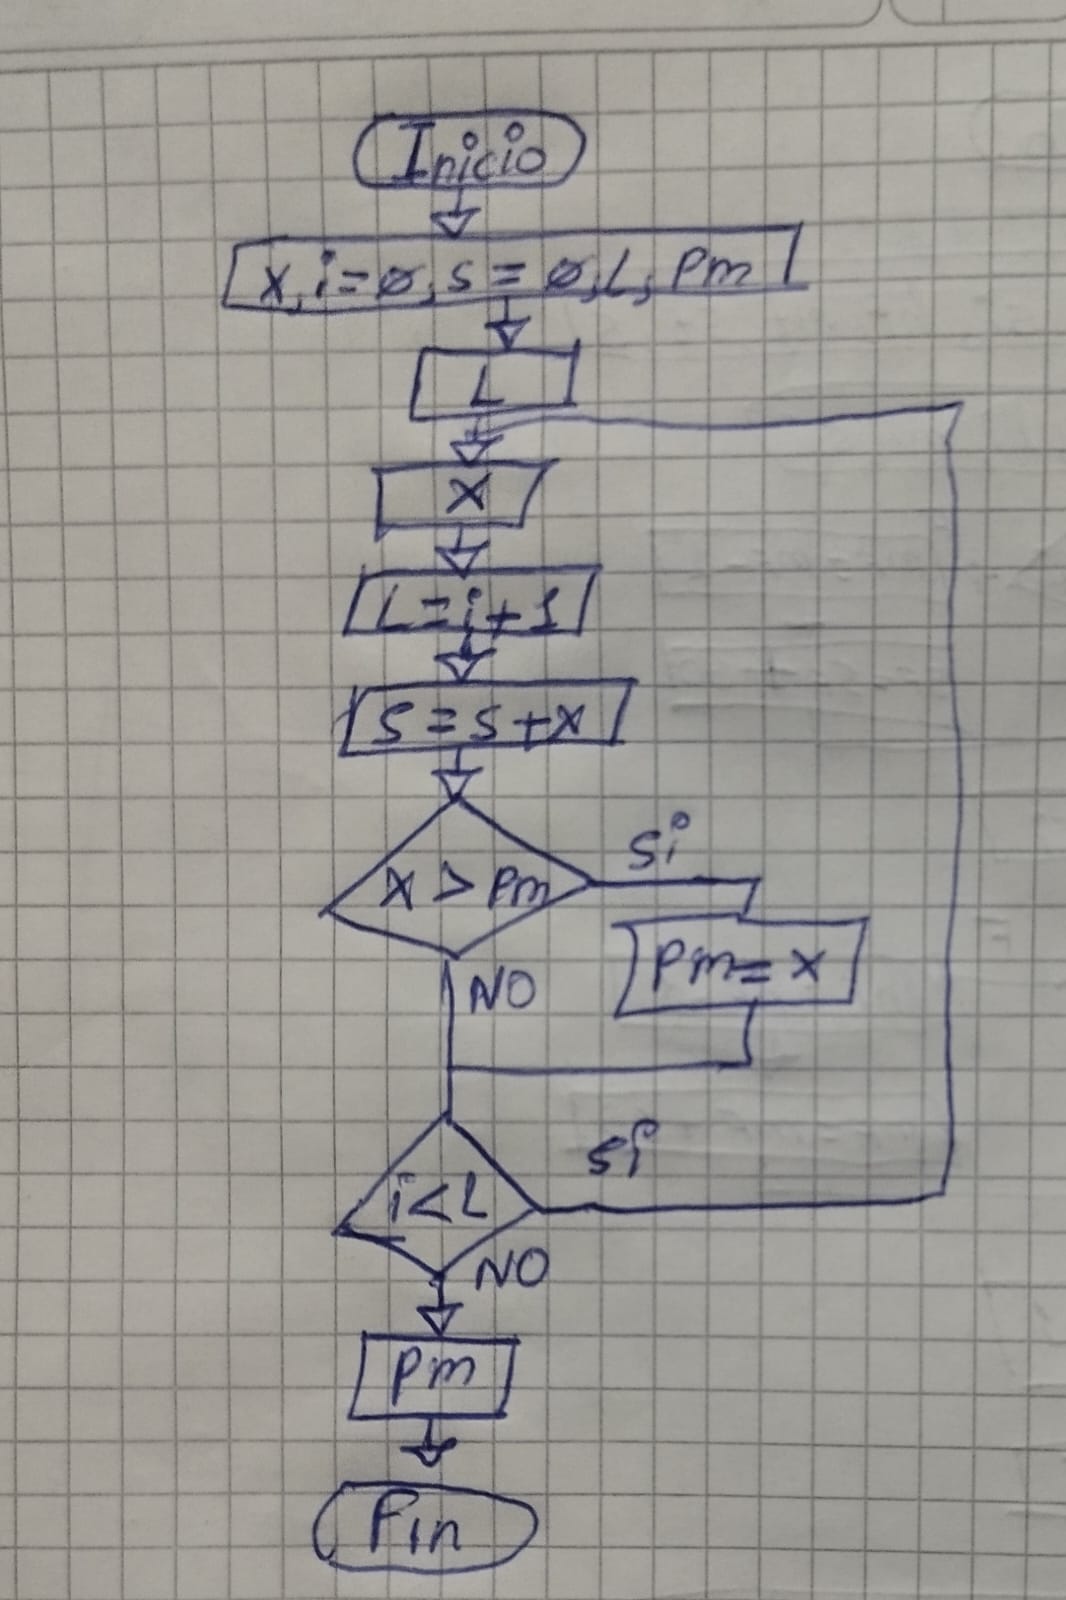 Inicio
X, i=ø, s = ø, L, Pm
L
X
L = i + 1
S = S + X
X > Pm
si
Pm = X
NO
si
i < L
NO
Pm
Fin